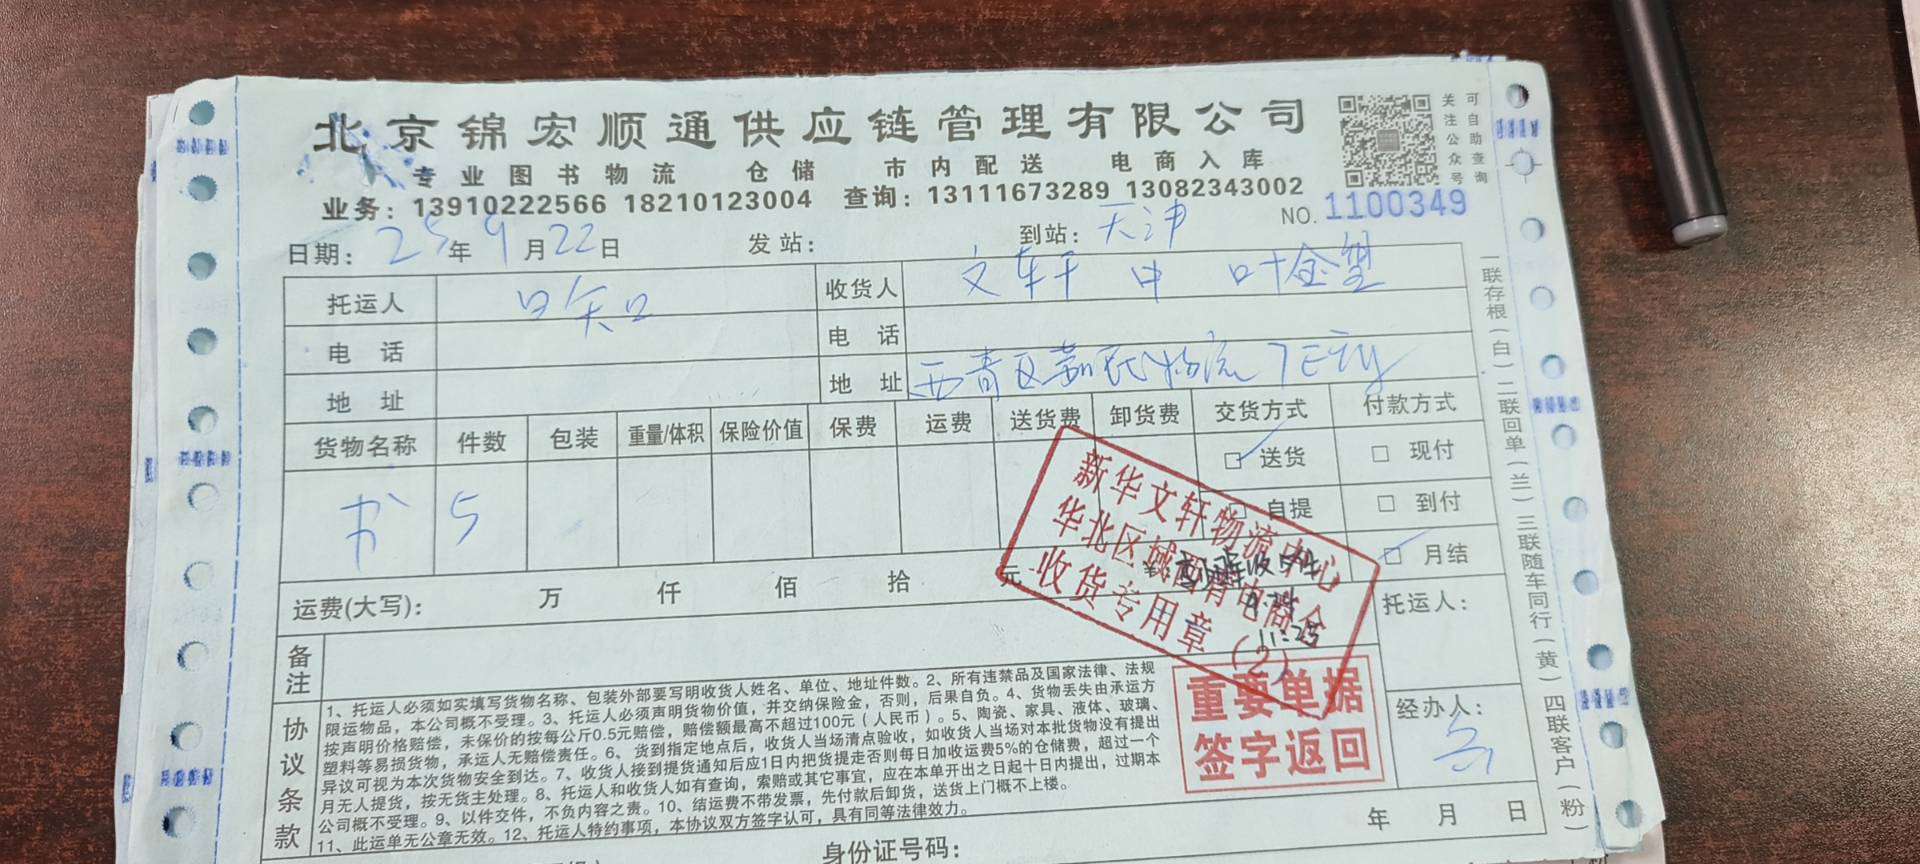 北京锦宏顺通供应链管理有限公司
专业图书物流 仓储 市内配送 电商入库
业务：13910222566 18210123004 查询：13111673289 13082343002
可自助查询
关注公众号
NO. 1100349
日期：25年9月22日 发站： 到站：天津
托运人 收货人 文轩 中 叶金
电话 电话
地址 地址 西青区新民物流
货物名称 件数 包装 重量/体积 保险价值 保费 运费 送货费 卸货费 交货方式 付款方式
书 5
□送货 □现付
自提 □到付
□月结
新华文轩物流中心
华北区域西青电商仓
收货专用章
(2)
11:25
运费(大写)： 万 仟 佰 拾 元
托运人：
备注
重要单据
签字返回
经办人：
协议条款
1、托运人必须如实填写货物名称、包装外部要写明收货人姓名、单位、地址件数。2、所有违禁品及国家法律、法规
限运物品，本公司概不受理。3、托运人必须声明货物价值，并交纳保险金，否则，后果自负。4、货物丢失由承运方
按声明价格赔偿，未保价的按每公斤0.5元赔偿，赔偿额最高不超过100元（人民币）。5、陶瓷、家具、液体、玻璃、
塑料等易损货物，承运人无赔偿责任。6、货到指定地点后，收货人当场清点验收，如收货人当场对本批货物没有提出
异议可视为本次货物安全到达。7、收货人接到提货通知后应1日内把货提走否则每日加收运费5%的仓储费，超过一个
月无人提货，按无货主处理。8、托运人和收货人如有查询，索赔或其它事宜，应在本单开出之日起十日内提出，过期本
公司概不受理。9、以件交件，不负内容之责。10、结运费不带发票，先付款后卸货，送货上门概不上楼。
11、此运单无公章无效。12、托运人特约事项，本协议双方签字认可，具有同等法律效力。
年 月 日
身份证号码：
一联存根(白) 二联回单(兰) 三联随车同行(黄) 四联客户(粉)